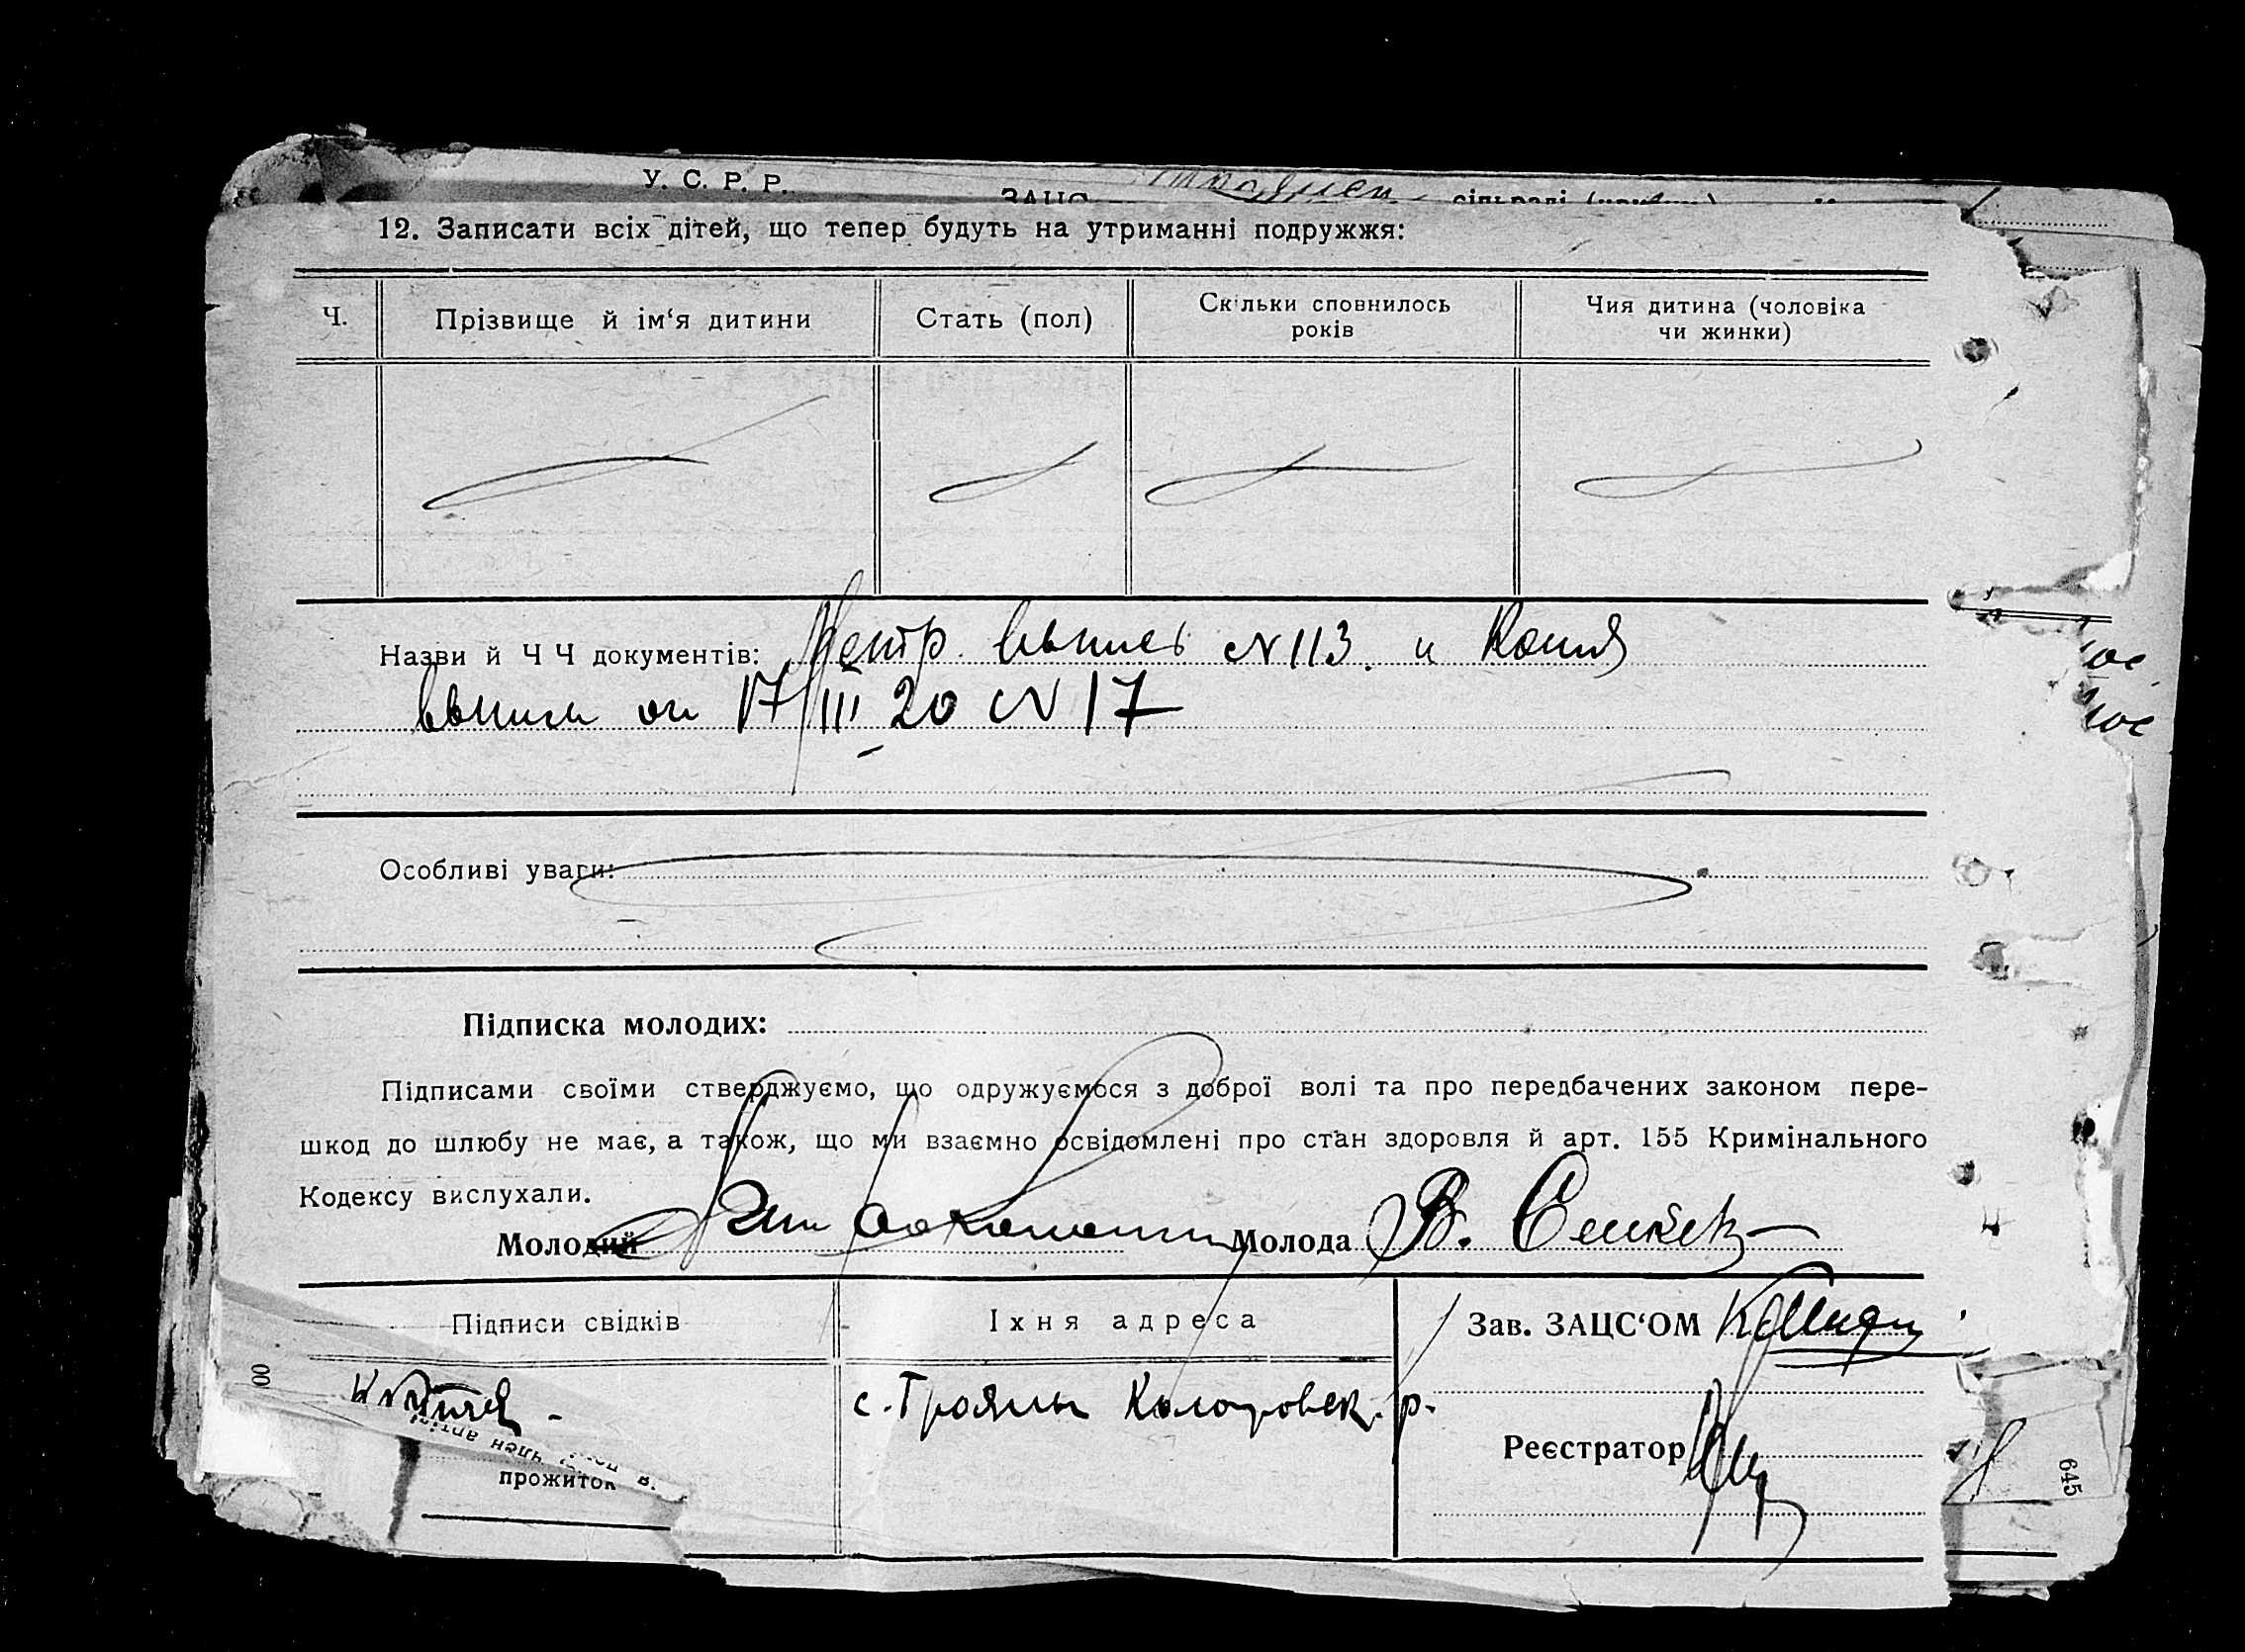 У. С. Р. Р.
ЗАЦС сільраді
12. Записати всіх дітей, що тепер будуть на утриманні подружжя:
Ч.
Прізвище й ім‘я дитини
Стать (пол)
Скільки сповнилось
років
Чия дитина (чоловіка
чи жинки)
Назви й Ч Ч документів: Метр. выпись N 113. и Копия
выписи от 17/III 20 N 17
Особливі уваги:
Підписка молодих:
Підписами своїми стверджуємо, що одружуємося з доброї волі та про передбачених законом пере-
шкод до шлюбу не має, а також, що ми взаємно освідомлені про стан здоровля й арт. 155 Кримінального
Кодексу вислухали.
Молодий
Молода В.
Підписи свідків
Їхня адреса
Зав. ЗАЦС‘ОМ
с. Трояны Коларовск. р.
Реєстратор
член артілі
прожиток
00
645